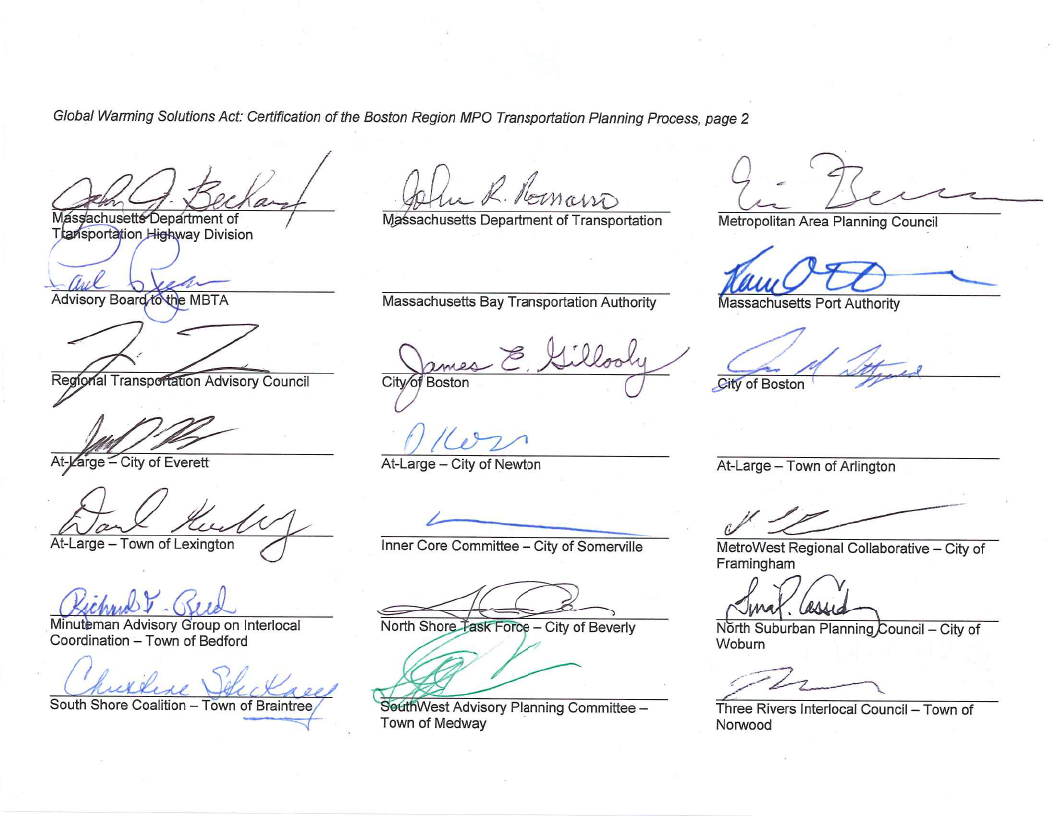 Global Warming Solutions Act: Certification of the Boston Region MPO Transportation Planning Process, page 2
John J. Bechard
John R. Romano
Massachusetts Department of
Transportation Highway Division
Massachusetts Department of Transportation
Metropolitan Area Planning Council
Paul Regan
Advisory Board to the MBTA
Massachusetts Bay Transportation Authority
Massachusetts Port Authority
Regional Transportation Advisory Council
James E. Gillooly
City of Boston
City of Boston
At-Large – City of Everett
At-Large – City of Newton
At-Large – Town of Arlington
At-Large – Town of Lexington
Inner Core Committee – City of Somerville
MetroWest Regional Collaborative – City of
Framingham
Richard F. Reed
Tina P. Cassidy
Minuteman Advisory Group on Interlocal
Coordination – Town of Bedford
North Shore Task Force – City of Beverly
North Suburban Planning Council – City of
Woburn
Christine Stickney
South Shore Coalition – Town of Braintree
SouthWest Advisory Planning Committee –
Town of Medway
Three Rivers Interlocal Council – Town of
Norwood